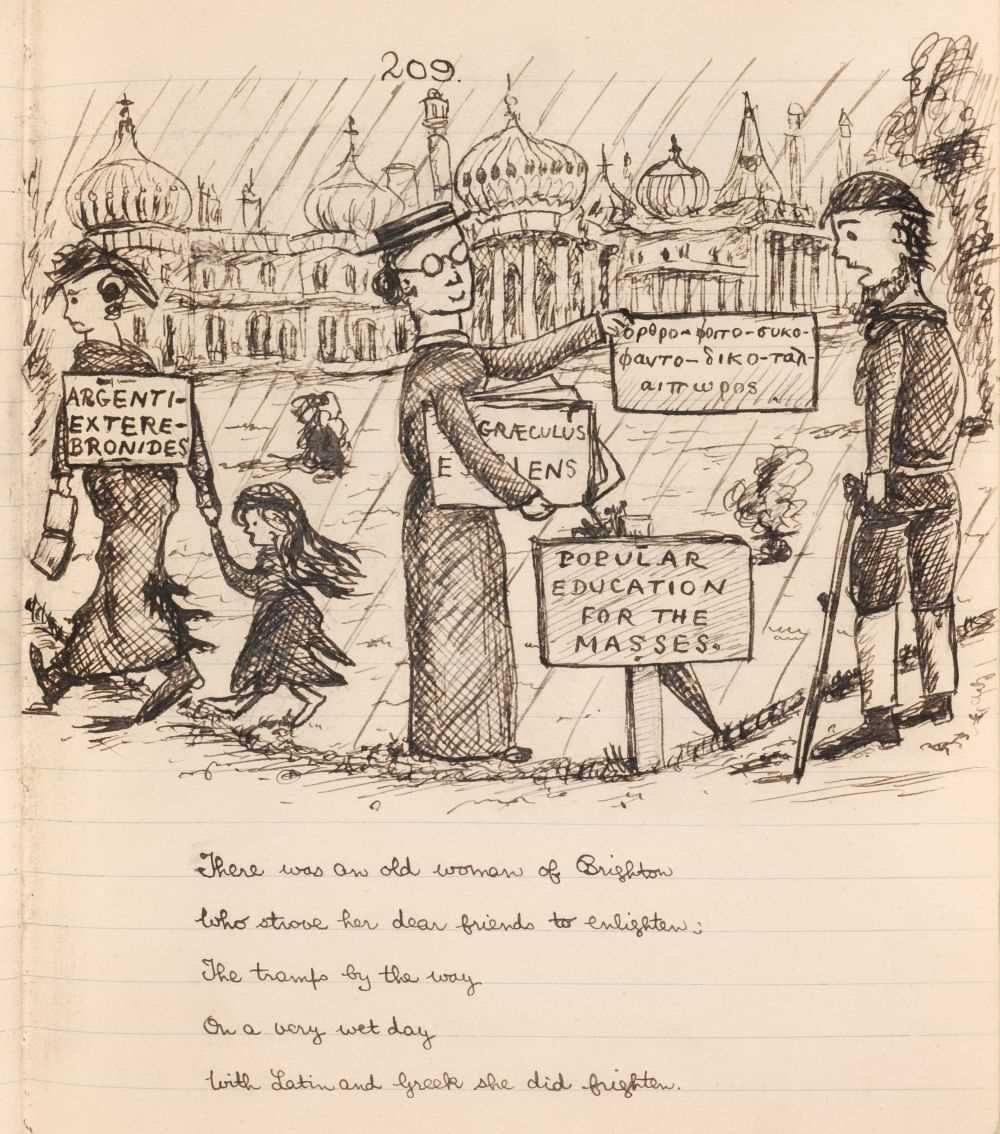 209.
ARGENTI-
EXTERE-
BRONIDES
GRÆCULUS
E LENS
ορθρο-φοιτο-συκο-
φαντο-δικο-ταλ-
αιπωρος
POPULAR
EDUCATION
FOR THE
MASSES.
There was an old woman of Brighton
Who strove her dear friends to enlighten;
The tramps by the way
On a very wet day
With Latin and Greek she did frighten.